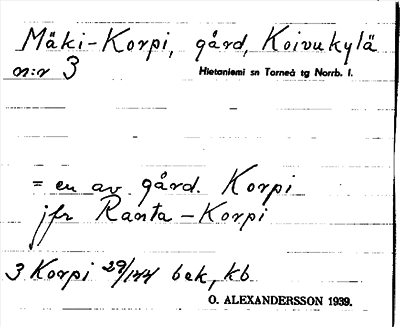 Mäki-Korpi, gård, Koivukylä
n:r 3
Hietaniemi sn Torneå tg Norrb. l.
= en av gård. Korpi
jfr Ranta-Korpi
3 Korpi 29/144 bak, kb
O. ALEXANDERSSON 1939.